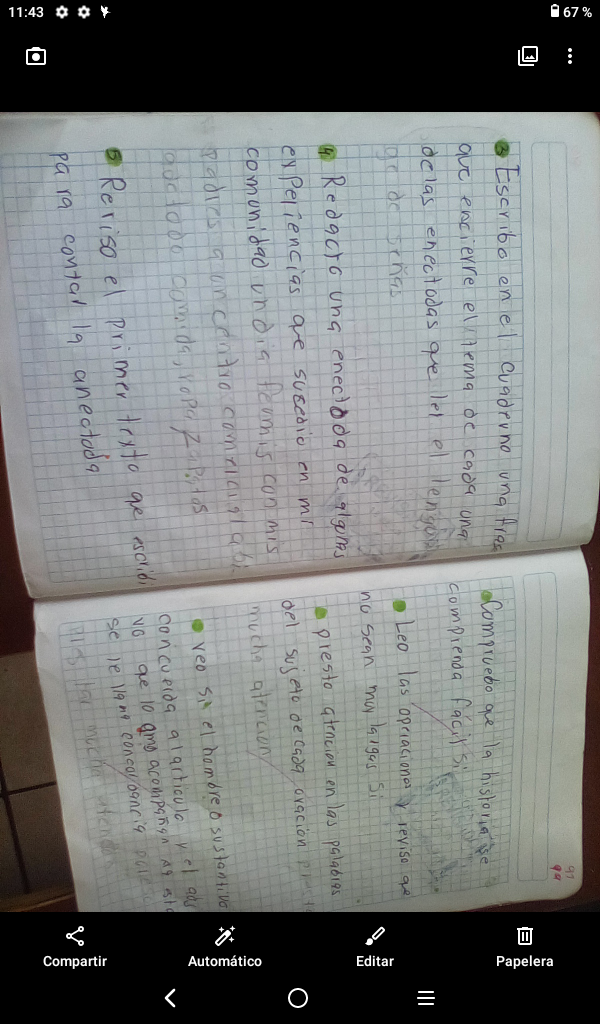 11:43
67 %
3 Escribo en el cuaderno una fras
que encierre el tema de cada una
de las enectodas que lei el lengua
ge de señas
4 Redacto una enectoda de algunas
experiencias que sucedio en mi
comunidad un dia fermis con mis
padres a un centro comercial abi
todo comida, ropa zapatos
5 Reviso el primer texto que escribi
para contar la anectoda
Compruebo que la historia se
comprenda fácil si
Leo las operaciones y reviso que
no sean muy largas si
presto atencion en las palabras
del sujeto de cada oración
mucha atencion
veo si el hombre o sustantivo
concuerda al articulo y el
vo que lo acompañan a esta
se le llama concordancia
mucha
Compartir
Automático
Editar
Papelera